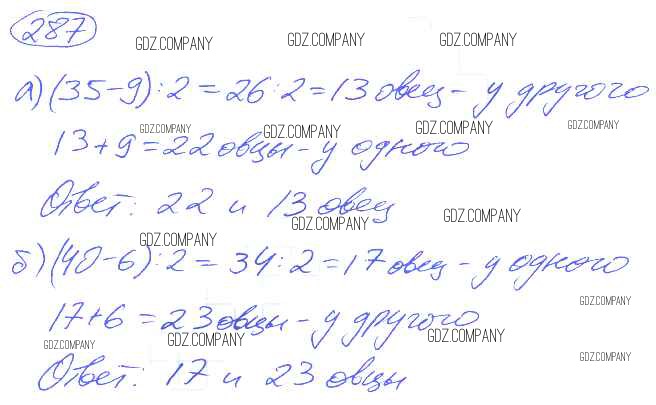 287
GDZ.COMPANY GDZ.COMPANY GDZ.COMPANY
а) (35-9):2=26:2=13 овец - у другого
GDZ.COMPANY GDZ.COMPANY GDZ.COMPANY GDZ.COMPANY
13+9=22 овцы - у одного
Ответ: 22 и 13 овец
GDZ.COMPANY GDZ.COMPANY GDZ.COMPANY
б) (40-6):2=34:2=17 овец - у одного
GDZ.COMPANY
17+6=23 овцы - у другого
GDZ.COMPANY GDZ.COMPANY GDZ.COMPANY GDZ.COMPANY
Ответ: 17 и 23 овцы